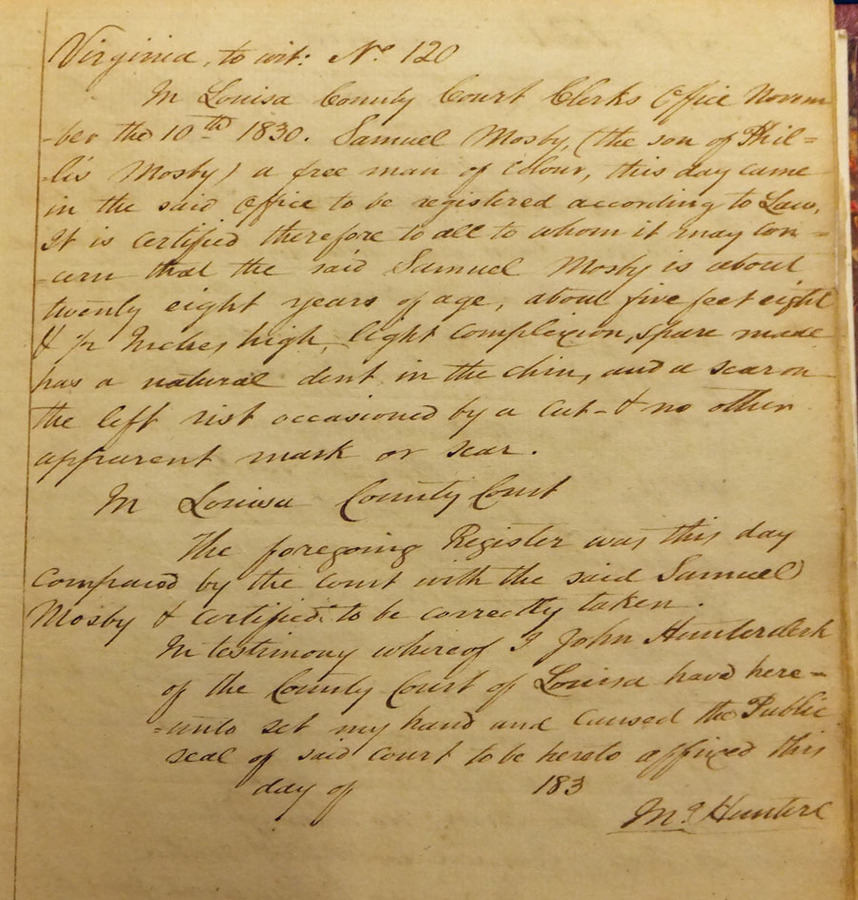 Virginia, to wit: No 120
In Louisa County Court Clerks Office Novem
-ber the 10th 1830. Samuel Mosby, (the son of Phil=
-lis Mosby) a free man of Colour, this day came
in the said Office to be registered according to Law,
It is certified therefore to all to whom it may con-
-cern that the said Samuel Mosby is about
twenty eight years of age, about five feet eight
& 1/2 Inches high, light complexion, spare made
has a natural dent in the chin, and a scar on
the left rist occasioned by a cut - & no other
apparent mark or scar.
In Louisa County Court
The foregoing Register was this day
Compared by the court with the said Samuel
Mosby & certified to be correctly taken.
In testimony whereof I John Hunter clerk
of the County Court of Louisa have here=
=unto set my hand and caused the Public
seal of said court to be hereto affixed this
day of 183
Hunter